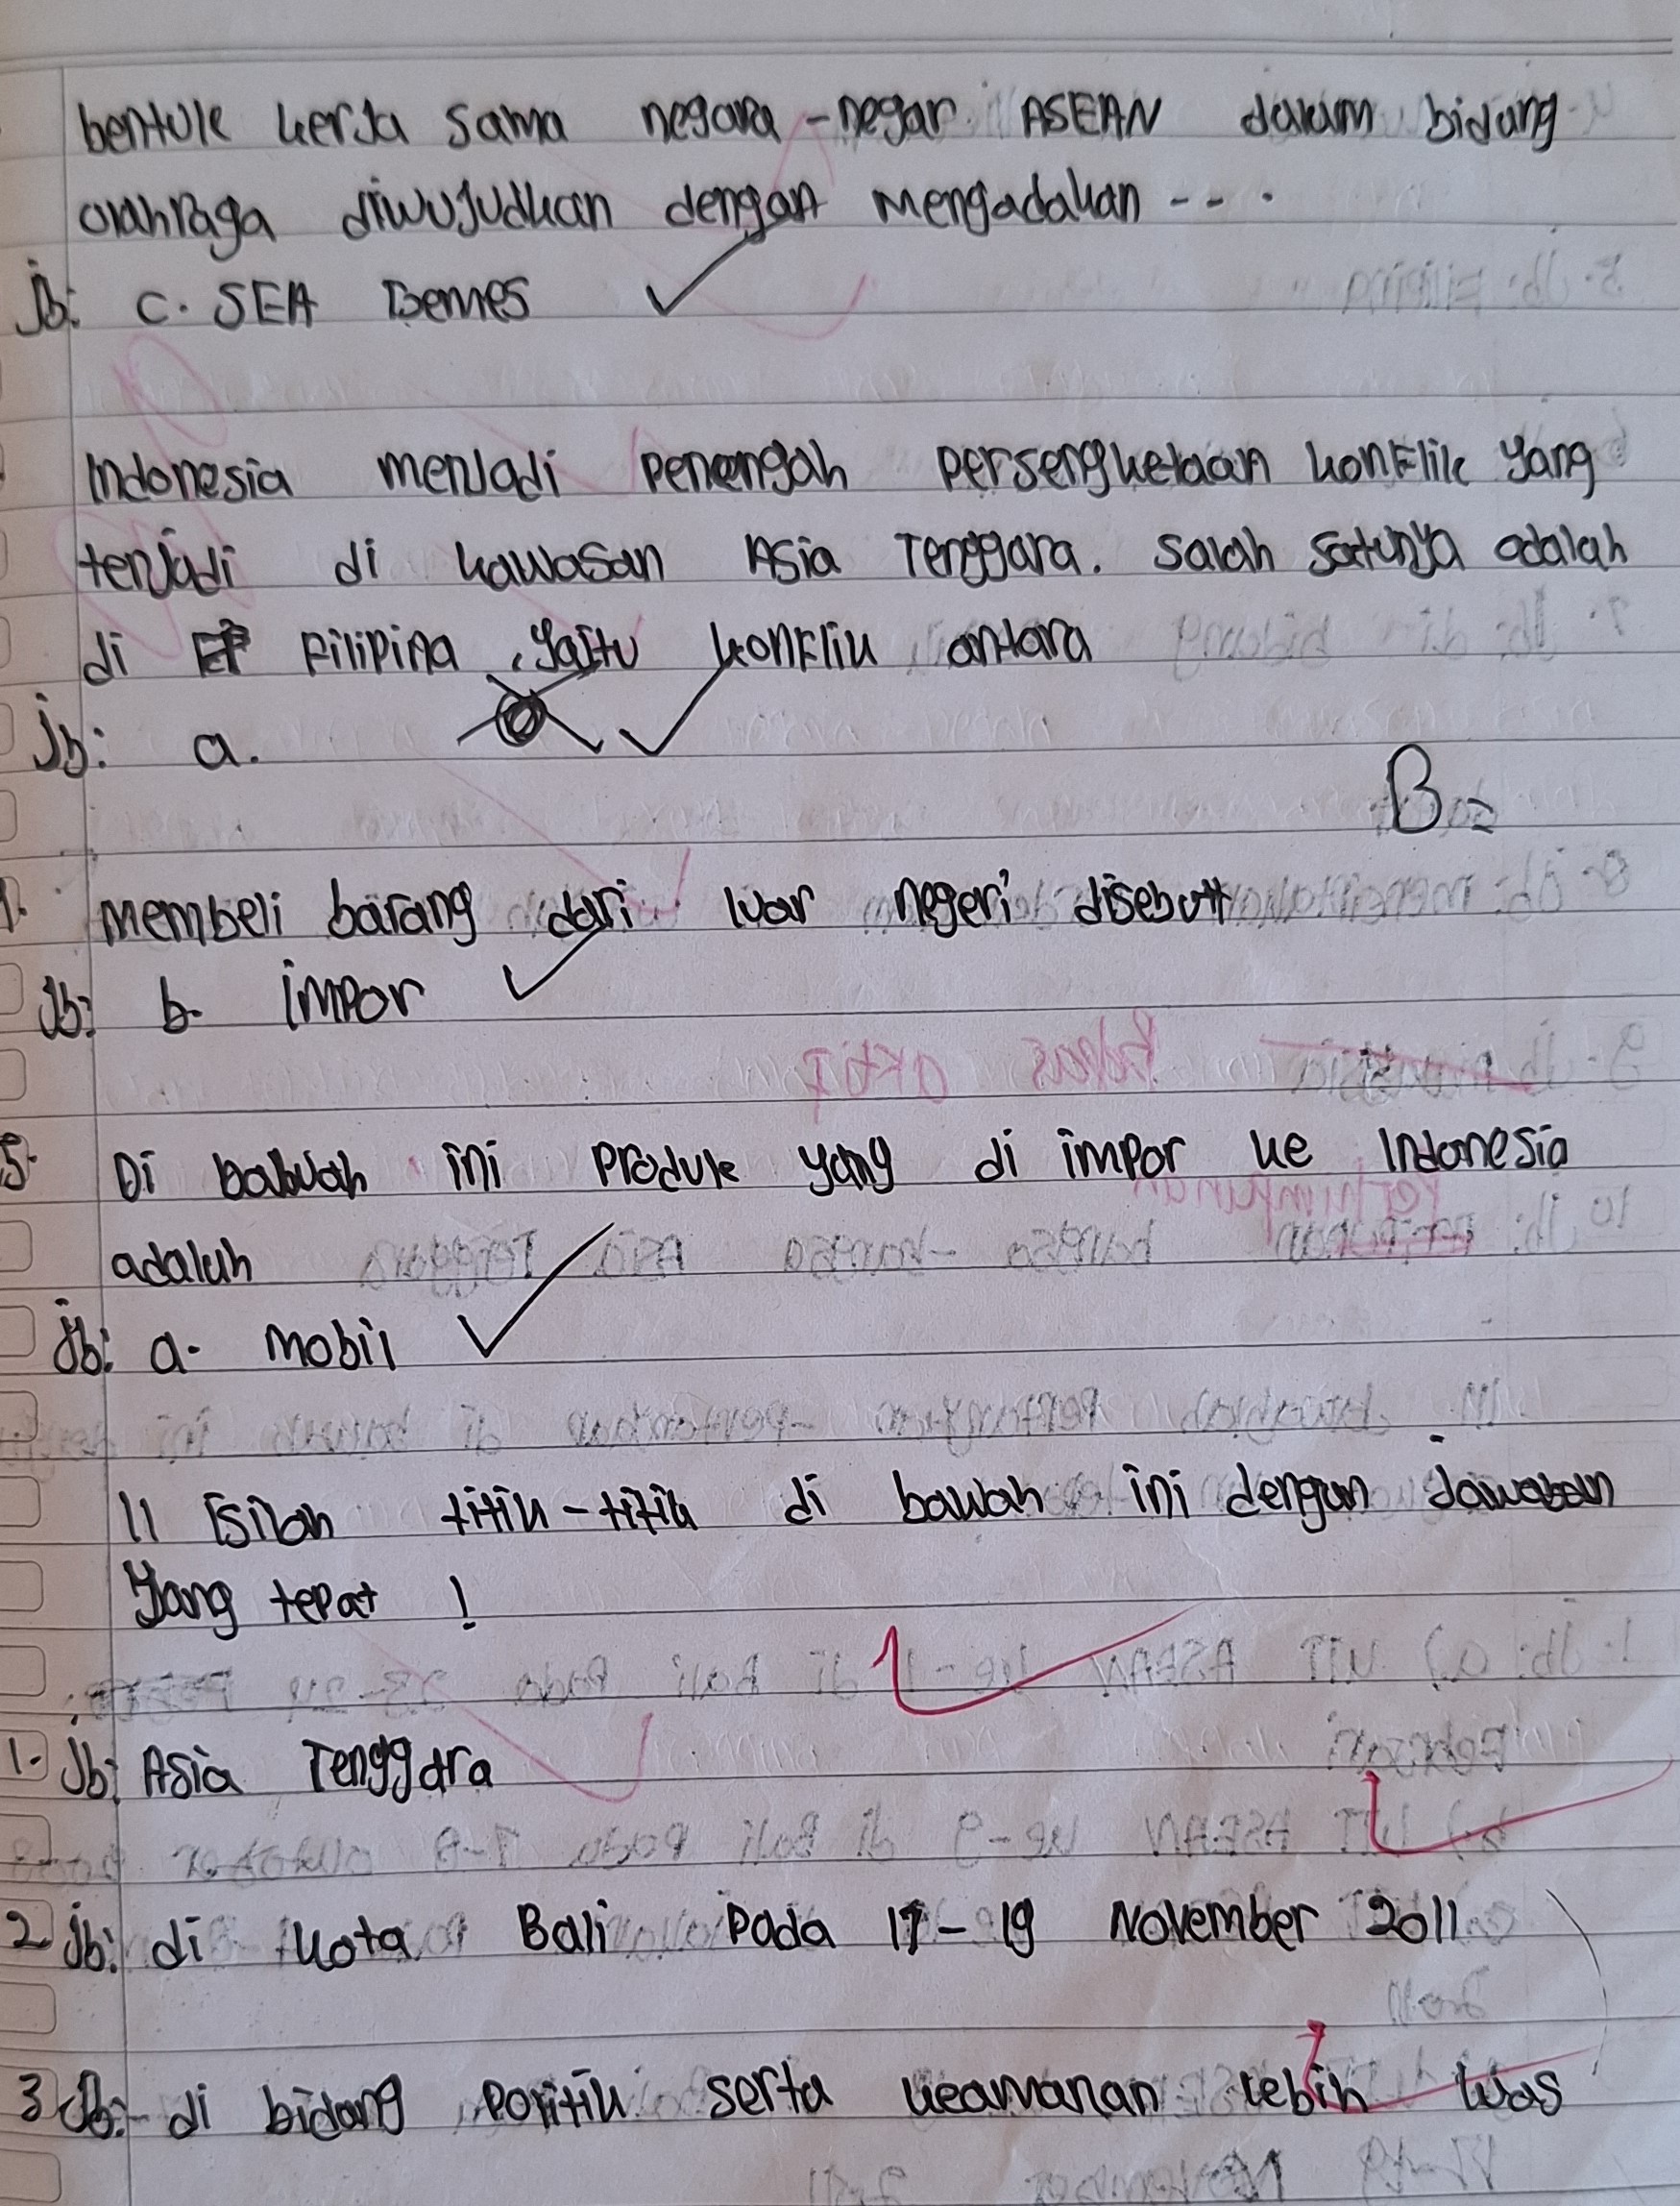 bentuk kerja sama negara-negar ASEAN dalam bidang
olahraga diwujudkan dengan mengadakan ...
Jb: C. SEA Gemes
Indonesia menjadi Penengah persengketaan konflik yang
terjadi di kawasan Asia Tenggara. salah satunya adalah
di Filipina, yaitu konflik antara
Jb: a.
B=
membeli barang dari luar negeri disebutt
Jb: b. impor
5. Di bawah ini produk yang di impor ke Indonesia
adalah
Jb: a. mobil
II Isilah titik-titik di bawah ini dengan jawaban
yang tepat !
1. Jb: Asia Tenggara
2 Jb: di kota Bali Pada 17-19 November 2011
3 Jb: di bidang politik serta keamanan lebih luas